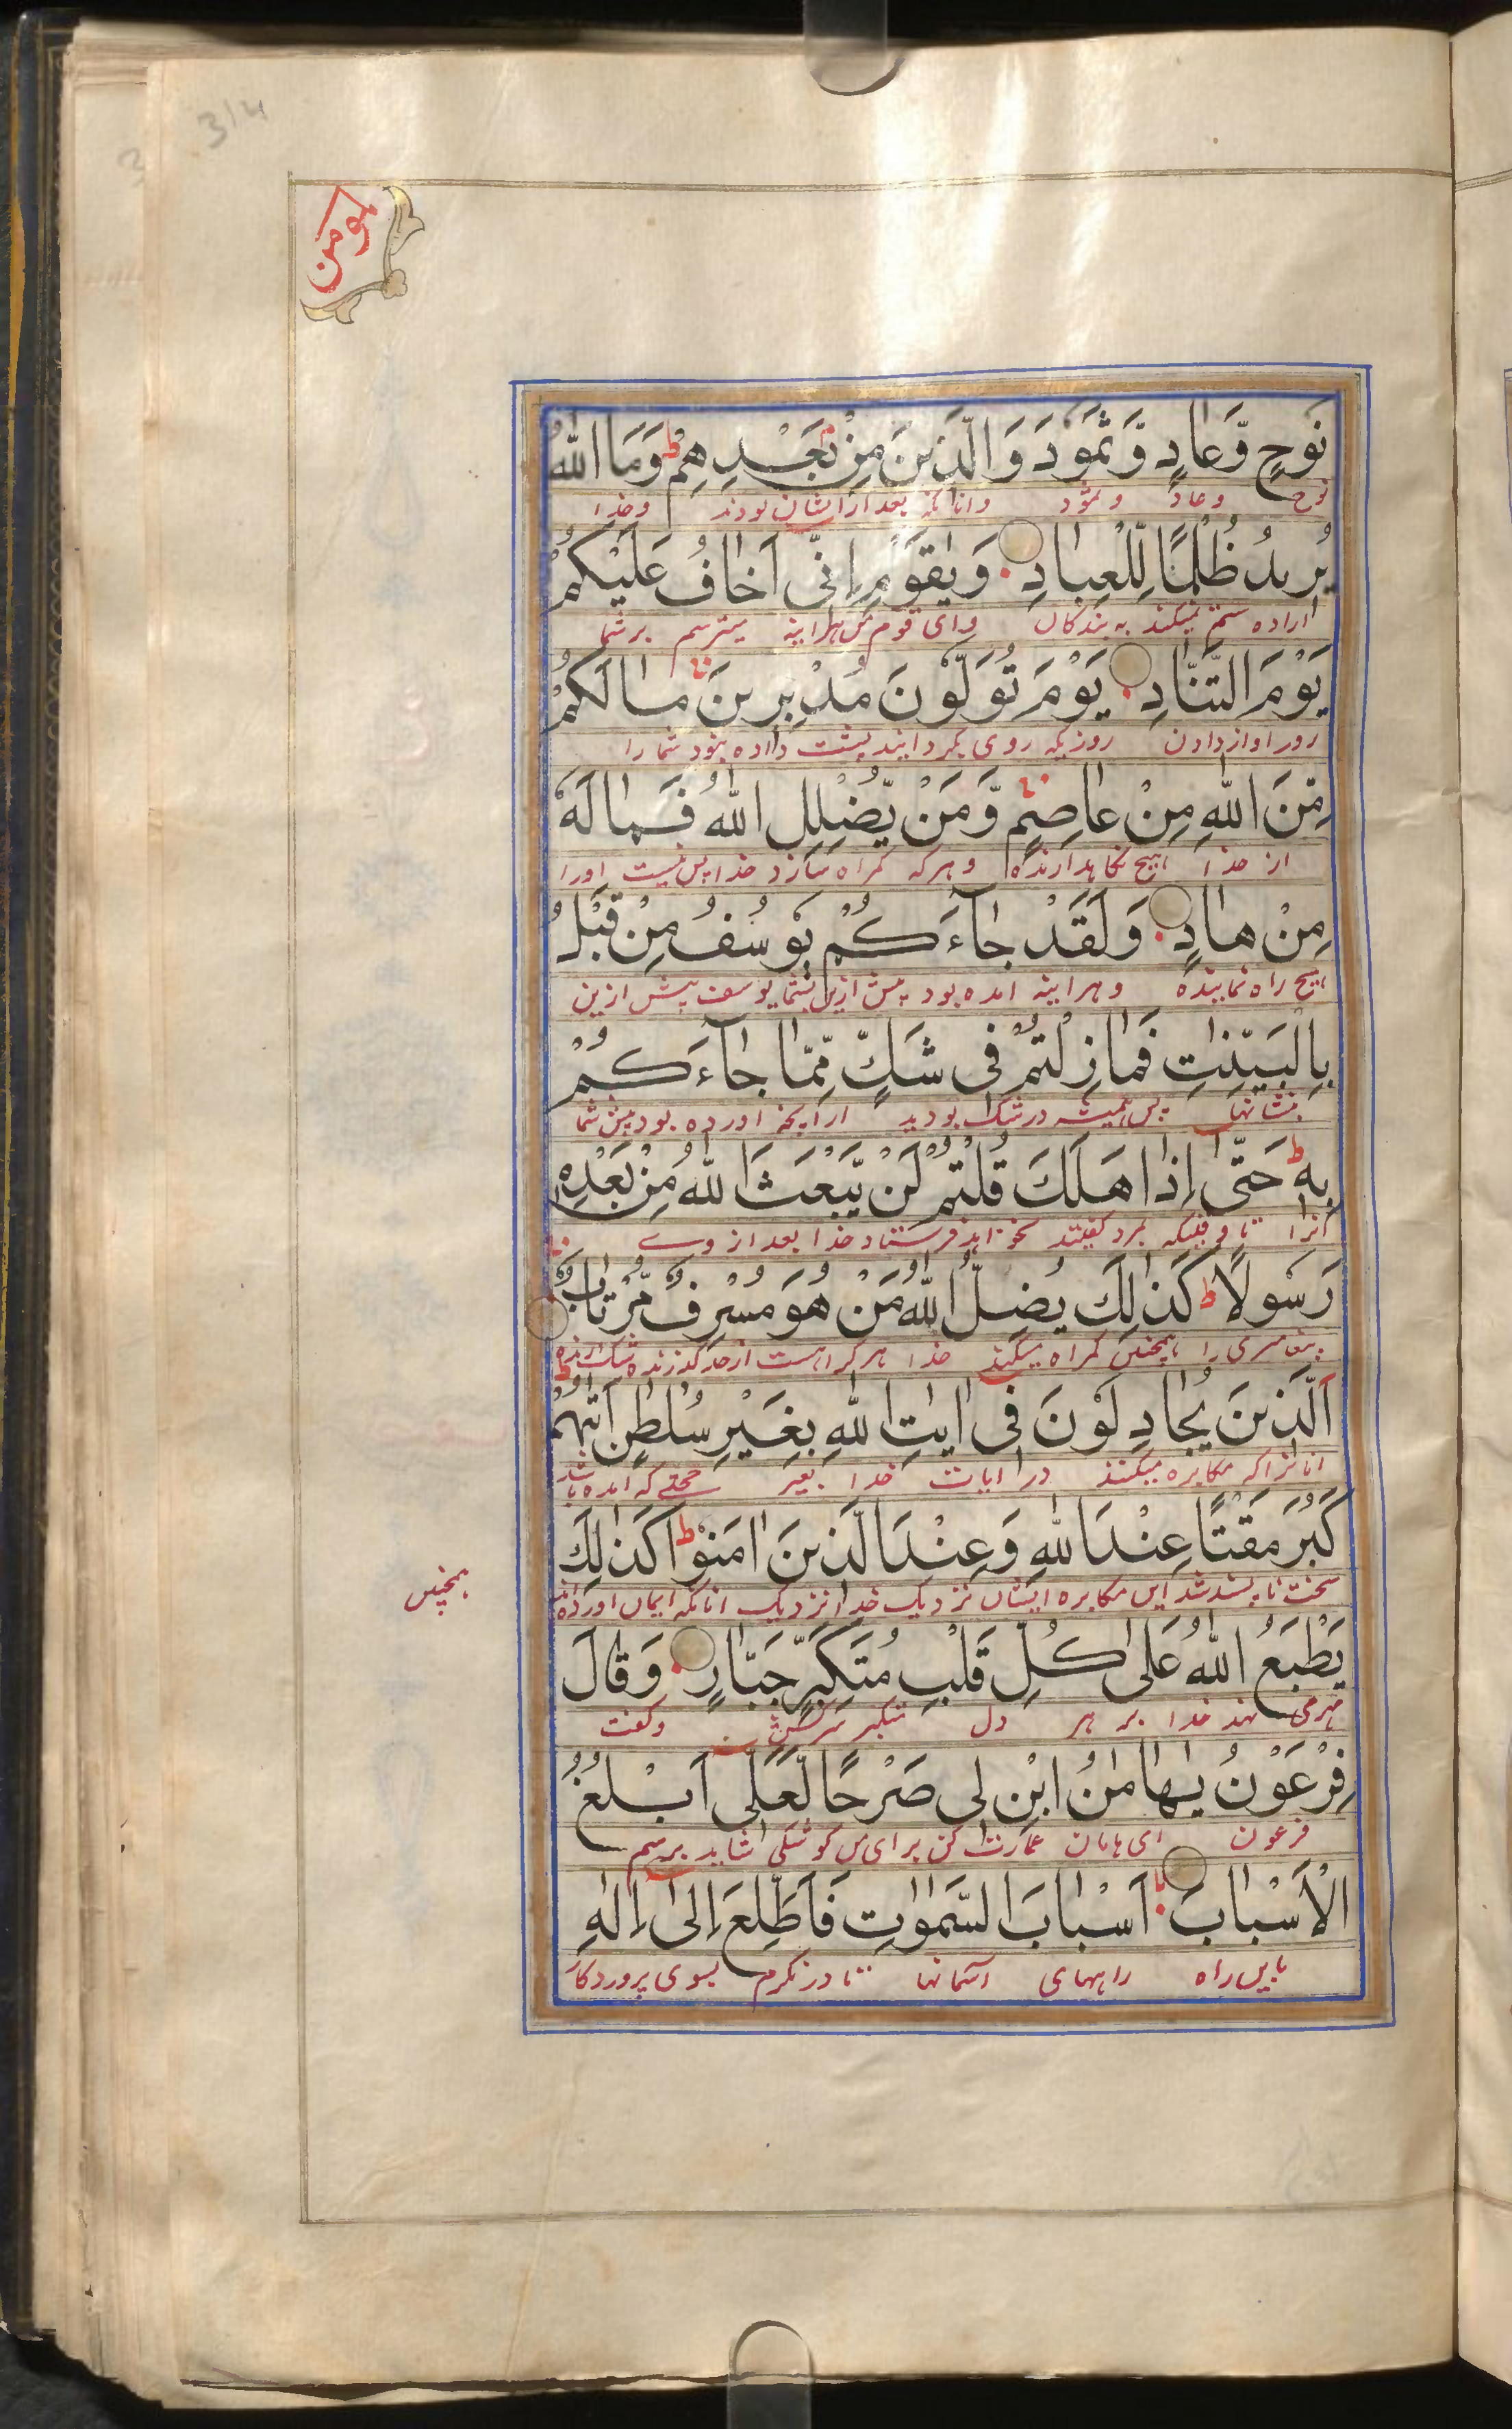 314
المومن
نُوحٍ وَّعَادٍ وَّثَمُودَ وَالَّذِينَ مِنْ بَعْدِهِمْ ط وَمَا اللّٰهُ
نوح و عاد و ثمود و انانکه بعد از ایشان بودند و خدا
يُرِيدُ ظُلْمًا لِّلْعِبَادِ وَيٰقَوْمِ اِنِّىْ اَخَافُ عَلَيْكُمْ
اراده ستم نمیکند به بندکان و ای قوم من هراینه میترسم بر شما
يَوْمَ التَّنَادِ يَوْمَ تُوَلُّونَ مُدْبِرِينَ مَا لَكُمْ
روز اواز دادن روزیکه روی بکردانید پشت داده نبود شما را
مِّنَ اللّٰهِ مِنْ عَاصِمٍ وَّمَنْ يُّضْلِلِ اللّٰهُ فَمَا لَهٗ
از خدا هیچ نکاهدارنده و هر که کمراه سازد خدا پس نیست اورا
مِنْ هَادٍ وَلَقَدْ جَآءَكُمْ يُوسُفُ مِنْ قَبْلُ
هیچ راه نماینده و هراینه امده بود پیش ازین بشما یوسف پیش ازین
بِالْبَيِّنٰتِ فَمَا زِلْتُمْ فِى شَكٍّ مِّمَّا جَآءَكُمْ
بنشانها پس همیشه در شک بودید از انچه اورده بود پیش شما
بِهٖ ط حَتّٰى اِذَا هَلَكَ قُلْتُمْ لَنْ يَّبْعَثَ اللّٰهُ مِنْ بَعْدِهٖ
انرا تا وقتیکه بمرد کفتند نخواهد فرستاد خدا بعد از وے
رَسُولًا ط كَذٰلِكَ يُضِلُّ اللّٰهُ مَنْ هُوَ مُسْرِفٌ مُّرْتَابٌ
پیغامبری را همچنین کمراه میکند خدا هر کرا هست از حد کذرنده شک ارنده
اَلَّذِينَ يُجَادِلُونَ فِى اٰيٰتِ اللّٰهِ بِغَيْرِ سُلْطٰنٍ اَتٰهُمْ ط
انانرا که مکابره میکنند در ایات خدا بغیر حجتے که امده باشد
كَبُرَ مَقْتًا عِنْدَ اللّٰهِ وَعِنْدَ الَّذِينَ اٰمَنُوْا ط كَذٰلِكَ
سخت ناپسند شد این مکابره ایشان نزدیک خدا نزدیک انانکه ایمان اورده اند
همچنین
يَطْبَعُ اللّٰهُ عَلٰى كُلِّ قَلْبِ مُتَكَبِّرٍ جَبَّارٍ وَقَالَ
مهر می نهد خدا بر هر دل متکبر سرکش و کفت
فِرْعَوْنُ يٰهَامٰنُ ابْنِ لِى صَرْحًا لَّعَلِّى اَبْلُغُ
فرعون ای هامان عمارت کن برای من کوشکی شاید برسم
الْاَسْبَابَ اَسْبَابَ السَّمٰوٰتِ فَاَطَّلِعَ اِلٰى اِلٰهِ
باین راه راههای آسمانها تا در نکرم بسوی پروردکار